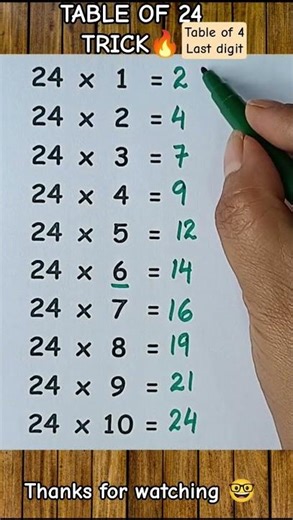 TABLE OF 24
TRICK🔥
Table of 4
Last digit
24 x 1 = 2
24 x 2 = 4
24 x 3 = 7
24 x 4 = 9
24 x 5 = 12
24 x 6 = 14
24 x 7 = 16
24 x 8 = 19
24 x 9 = 21
24 x 10 = 24
Thanks for watching 🤓